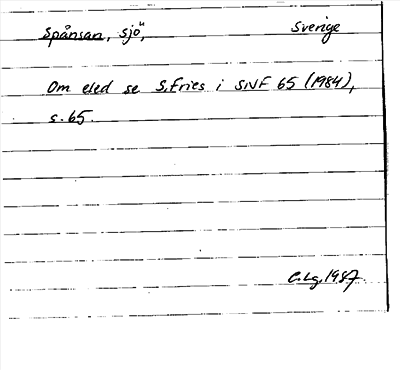 Spånsan, sjö, Sverige
Om eled se S.Fries i SNF 65 (1984),
s.65.
C.Lg.1987.